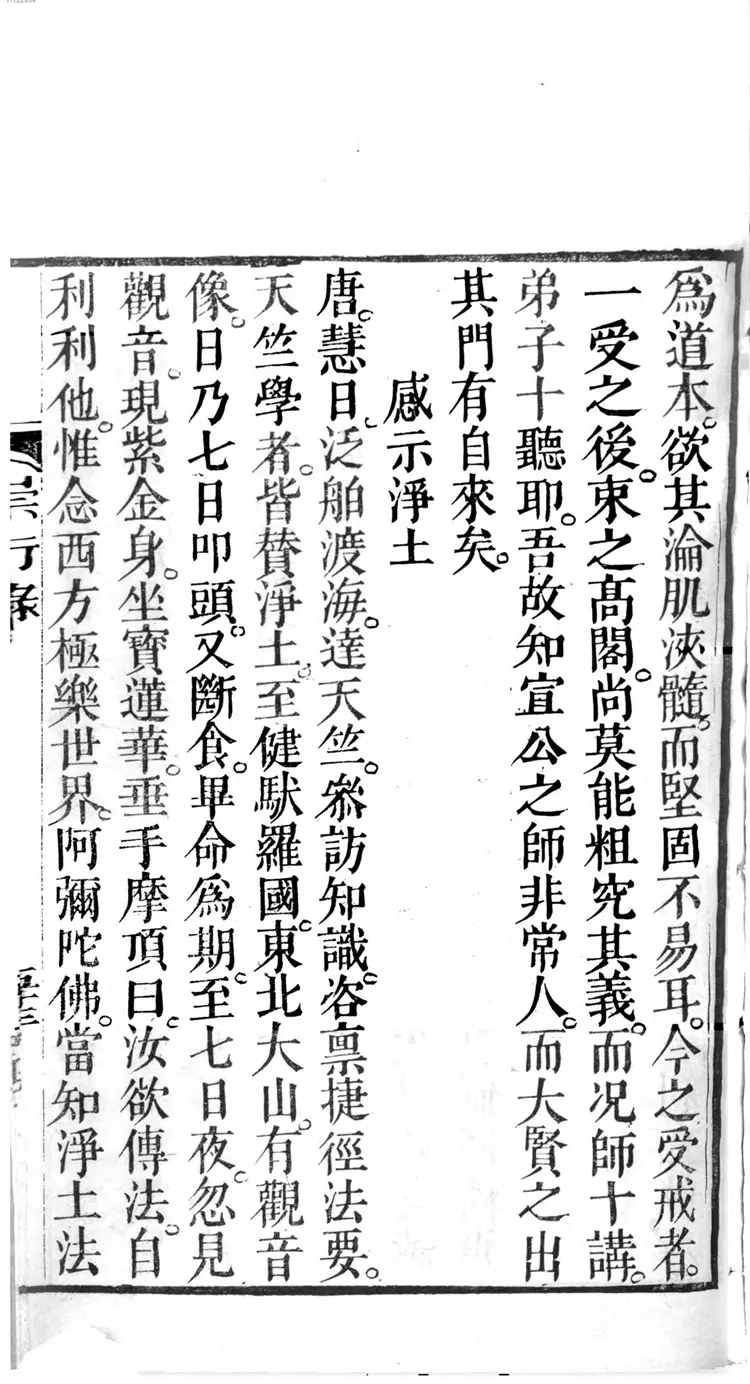 為道本。欲其淪肌浹髓。而堅固不易耳。今之受戒者。
一受之後。束之高閣。尚莫能粗究其義。而况師十講。
弟子十聽耶。吾故知宣公之師非常人。而大賢之出
其門有自來矣。
感示淨土
唐。慧日。泛舶渡海。達天竺。叅訪知識。咨禀捷徑法要。
天竺學者。皆賛淨土。至健馱羅國。東北大山。有觀音
像。日乃七日叩頭。又斷食。畢命為期。至七日夜。忽見
觀音。現紫金身。坐寶蓮華。垂手摩頂曰。汝欲傳法。自
利利他。惟念西方極樂世界。阿彌陀佛。當知淨土法
行錄